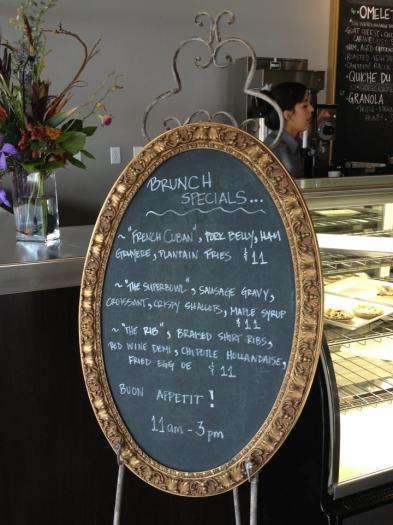 BRUNCH
SPECIALS...
~ "FRENCH CUBAN", PORK BELLY, HAM
GRUYERE, PLANTAIN FRIES $11
~ "THE SUPERBOWL", SAUSAGE GRAVY,
CROISSANT, CRISPY SHALLOTS, MAPLE SYRUP
$11
~ "THE RIB", BRAISED SHORT RIBS,
RED WINE DEMI, CHIPOTLE HOLLANDAISE,
FRIED EGG OE $11
BUON APPETIT!
11am - 3pm
OMELE
GOAT CHEESE,
QUICHE DU
GRANOLA